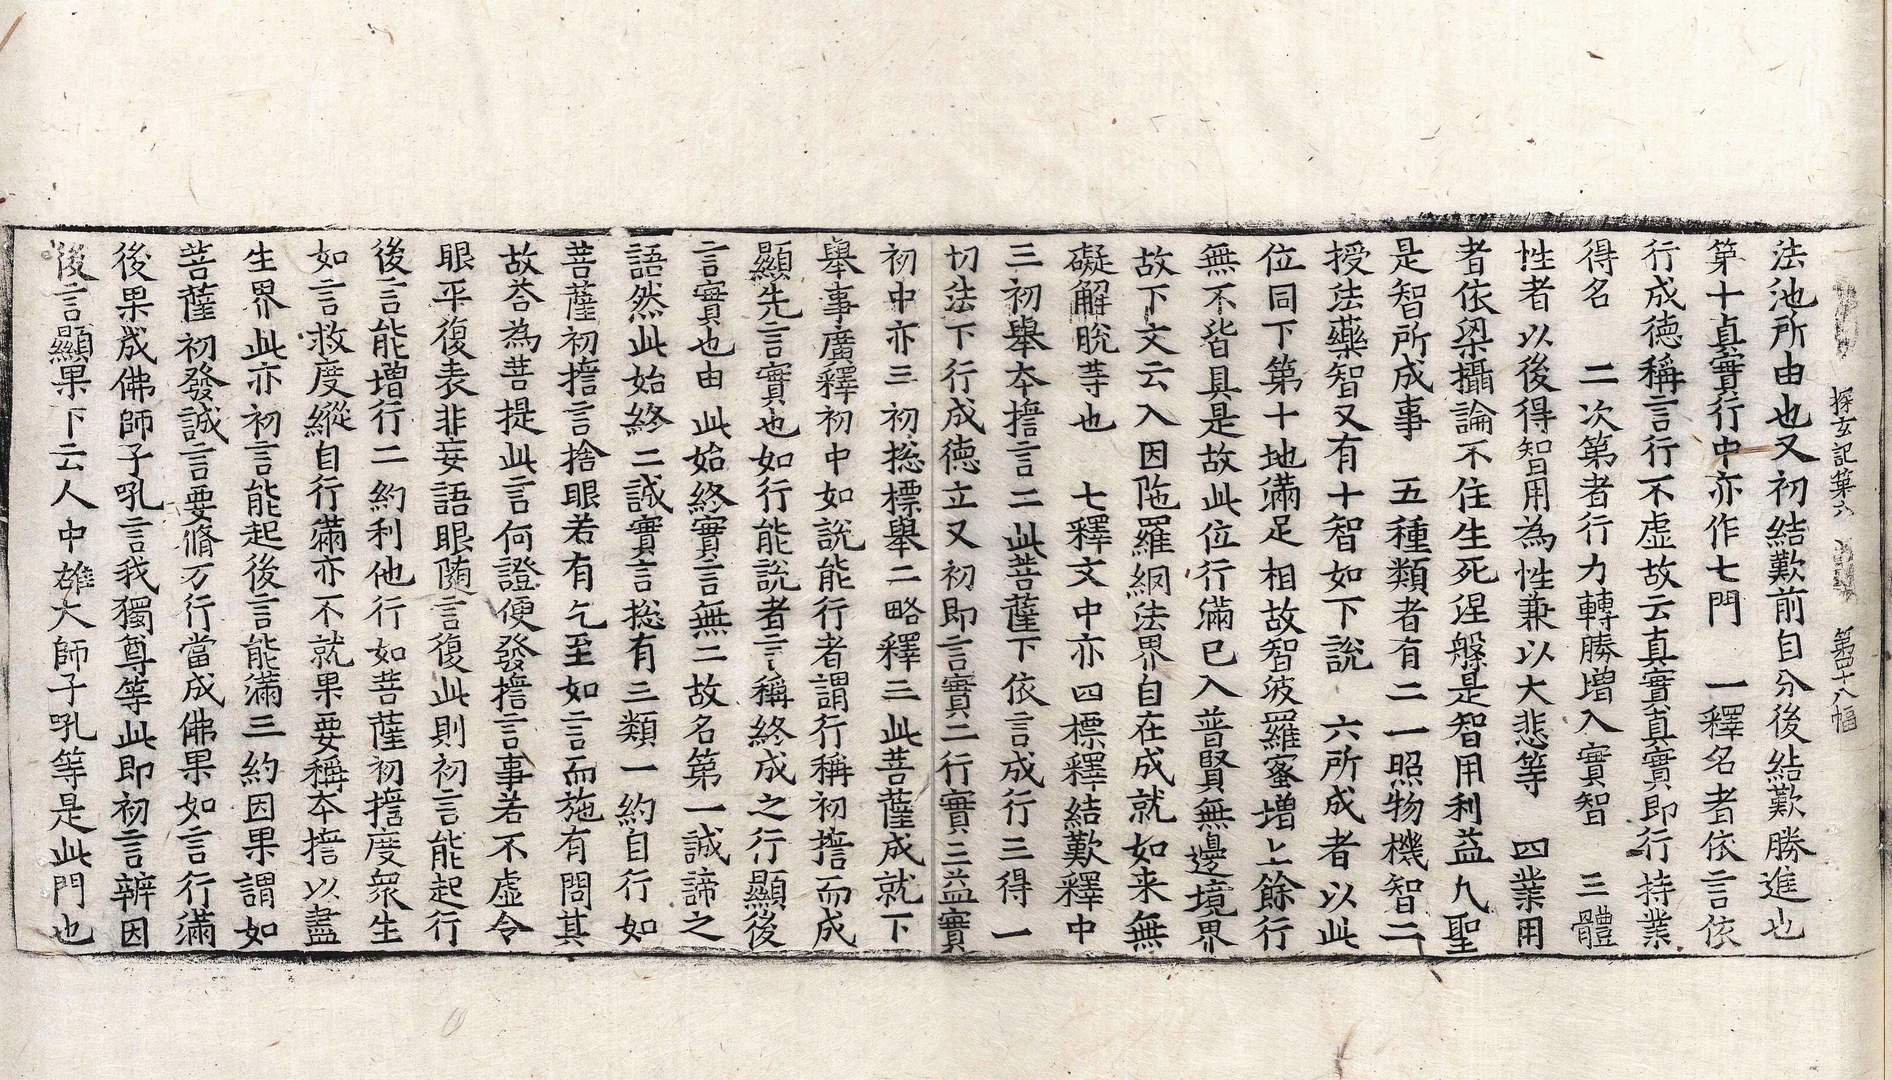 探玄記第六　第四十八幅
法池所由也又初結歎前自分後結歎勝進也
第十真實行中亦作七門　一釋名者依言依
行成德稱言行不虛故云真實真實即行持業
得名　二次第者行力轉勝增入實智　三體
性者以後得智用為性兼以大悲等　四業用
者依梁攝論不住生死涅槃是智用利益凡聖
是智所成事　五種類者有二一照物機智二
授法藥智又有十智如下說　六所成者以此
位同下第十地滿足相故智波羅蜜增上餘行
無不皆具是故此位行滿已入普賢無邊境界
故下文云入因陁羅網法界自在成就如来無
礙解脫等也　七釋文中亦四標釋結歎釋中
三初舉本擔言二此菩薩下依言成行三得一
切法下行成德立又初即言實二行實三益實
初中亦三初捴標舉二略釋三此菩薩成就下
舉事廣釋初中如說能行者謂行稱初擔而成
顯先言實也如行能說者言稱終成之行顯後
言實也由此始終實言無二故名第一誠諦之
語然此始終二誠實言捴有三類一約自行如
菩薩初擔言捨眼若有乞至如言而施有問其
故荅為菩提此言何證便發擔言事若不虛令
眼平復表非妄語眼随言復此則初言能起行
後言能增行二約利他行如菩薩初擔度衆生
如言救度縱自行滿亦不就果要稱本擔以盡
生界此亦初言能起後言能滿三約因果謂如
菩薩初發誠言要脩万行當成佛果如言行滿
後果成佛師子吼言我獨尊等此即初言辨因
後言顯果下云人中雄大師子吼等是此門也